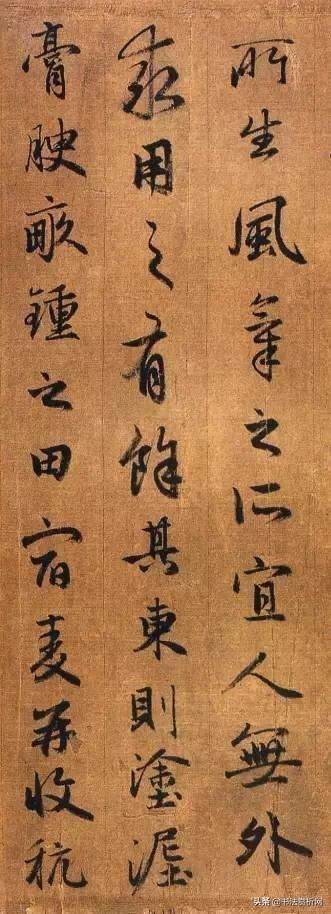 所生風氣之所宜人無外
求用之有餘其東則塗泥
膏腴畝鍾之田宿麦并收秔
头条 @书法赏析网